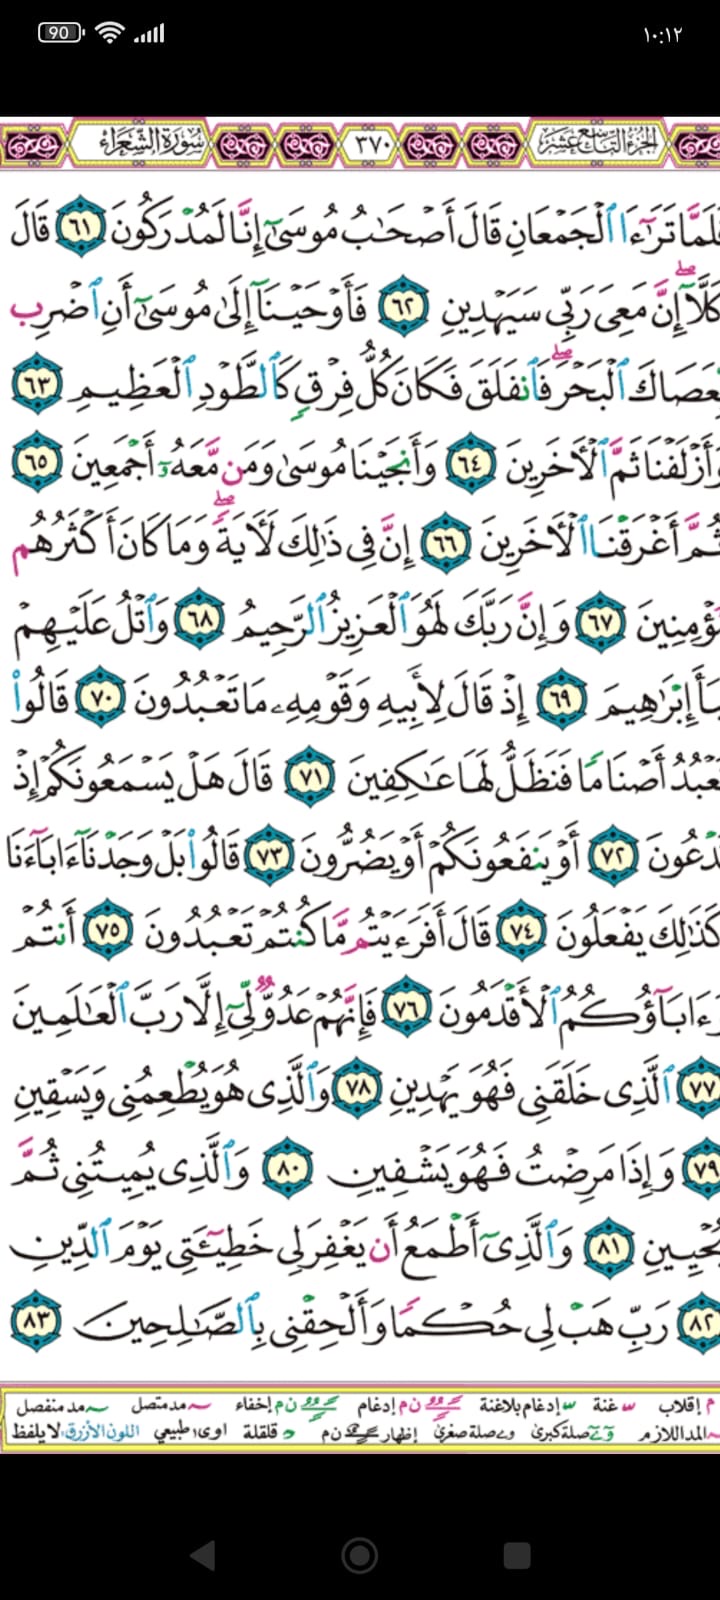 90
١٠:١٢
الجزء التاسع عشر
٣٧٠
سورة الشعراء
فَلَمَّا تَرَٰٓءَا ٱلْجَمْعَانِ قَالَ أَصْحَٰبُ مُوسَىٰٓ إِنَّا لَمُدْرَكُونَ ٦١ قَالَ
كَلَّآ ۖ إِنَّ مَعِىَ رَبِّى سَيَهْدِينِ ٦٢ فَأَوْحَيْنَآ إِلَىٰ مُوسَىٰٓ أَنِ ٱضْرِب
بِّعَصَاكَ ٱلْبَحْرَ ۖ فَٱنفَلَقَ فَكَانَ كُلُّ فِرْقٍ كَٱلطَّوْدِ ٱلْعَظِيمِ ٦٣
وَأَزْلَفْنَا ثَمَّ ٱلْءَاخَرِينَ ٦٤ وَأَنجَيْنَا مُوسَىٰ وَمَن مَّعَهُۥٓ أَجْمَعِينَ ٦٥
ثُمَّ أَغْرَقْنَا ٱلْءَاخَرِينَ ٦٦ إِنَّ فِى ذَٰلِكَ لَءَايَةً ۖ وَمَا كَانَ أَكْثَرُهُم
مُّؤْمِنِينَ ٦٧ وَإِنَّ رَبَّكَ لَهُوَ ٱلْعَزِيزُ ٱلرَّحِيمُ ٦٨ وَٱتْلُ عَلَيْهِمْ
نَبَأَ إِبْرَٰهِيمَ ٦٩ إِذْ قَالَ لِأَبِيهِ وَقَوْمِهِۦ مَا تَعْبُدُونَ ٧٠ قَالُوا۟
نَعْبُدُ أَصْنَامًا فَنَظَلُّ لَهَا عَٰكِفِينَ ٧١ قَالَ هَلْ يَسْمَعُونَكُمْ إِذْ
تَدْعُونَ ٧٢ أَوْ يَنفَعُونَكُمْ أَوْ يَضُرُّونَ ٧٣ قَالُوا۟ بَلْ وَجَدْنَآ ءَابَآءَنَا
كَذَٰلِكَ يَفْعَلُونَ ٧٤ قَالَ أَفَرَءَيْتُم مَّا كُنتُمْ تَعْبُدُونَ ٧٥ أَنتُمْ
وَءَابَآؤُكُمُ ٱلْأَقْدَمُونَ ٧٦ فَإِنَّهُمْ عَدُوٌّ لِّىٓ إِلَّا رَبَّ ٱلْعَٰلَمِينَ
٧٧ ٱلَّذِى خَلَقَنِى فَهُوَ يَهْدِينِ ٧٨ وَٱلَّذِى هُوَ يُطْعِمُنِى وَيَسْقِينِ
٧٩ وَإِذَا مَرِضْتُ فَهُوَ يَشْفِينِ ٨٠ وَٱلَّذِى يُمِيتُنِى ثُمَّ
يُحْيِينِ ٨١ وَٱلَّذِىٓ أَطْمَعُ أَن يَغْفِرَ لِى خَطِيٓـَٔتِى يَوْمَ ٱلدِّينِ
٨٢ رَبِّ هَبْ لِى حُكْمًا وَأَلْحِقْنِى بِٱلصَّٰلِحِينَ ٨٣
م إقلاب غنة إدغام بلاغنة ن م إدغام ن م إخفاء مد متصل مد منفصل
المد اللازم صلة كبرى صلة صغرى إظهار ن م قلقلة اوى طبيعي اللون الأزرق لا يلفظ